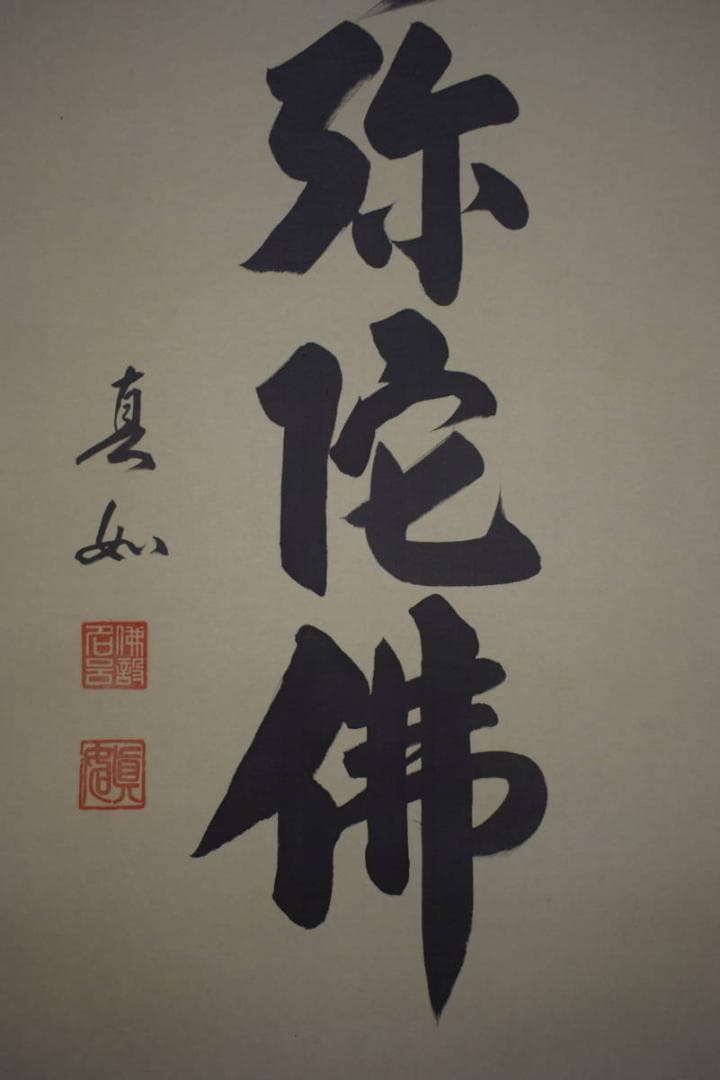 弥陀佛
真如